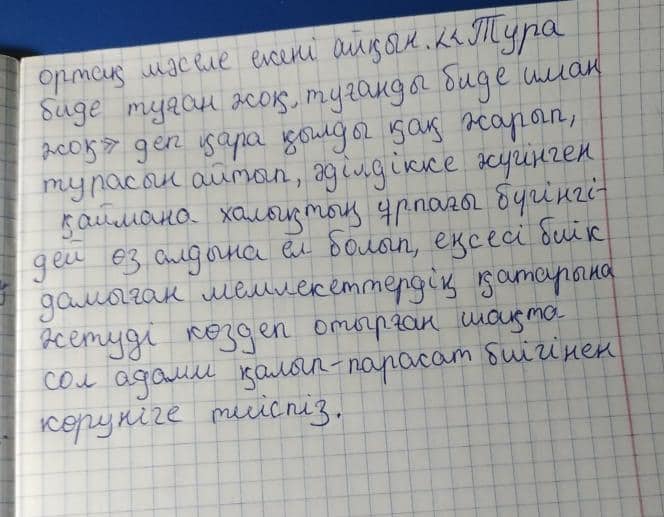 ортақ мәселе екені айқын. «Тура
биде туған жоқ, туғанды биде иман
жоқ» деп қара қылды қақ жарып,
турасын айтып, әділдікке жүгінген
қаймана халықтың ұрпағы бүгінгі-
дей өз алдына ел болып, еңсесі биік
дамыған мемлекеттердің қатарына
жетуді көздеп отырған шақта
сол адами қалып-парасат биігінен
көруніге тиіспіз.